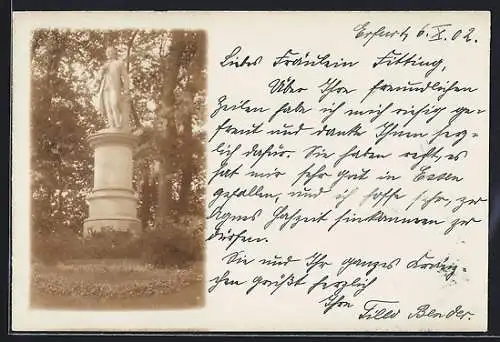 Erfurt, 6.X.02.
Liebes Fräulein Fitting,
Über Ihre freundlichen
Zeilen habe ich mich riesig ge-
freut und danke Ihnen herz-
lich dafür. Sie haben recht, es
hat mir sehr gut in Essen
gefallen, und ich hoffe sehr, zu
Agnes Hochzeit hinkommen zu
dürfen.
Sie und Ihr ganzes
chen grüßt herzlich
Ihre Tilly Bender.